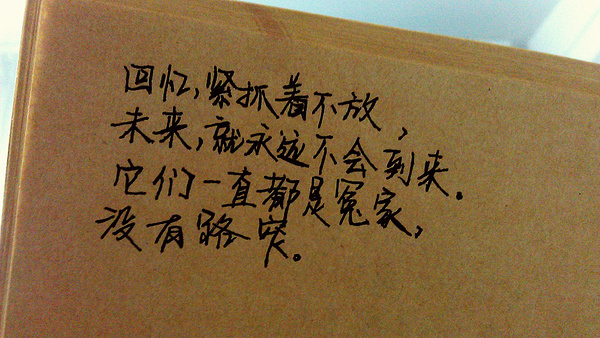 回忆,紧抓着不放,
未来,就永远不会到来。
它们一直都是冤家,
没有路突。